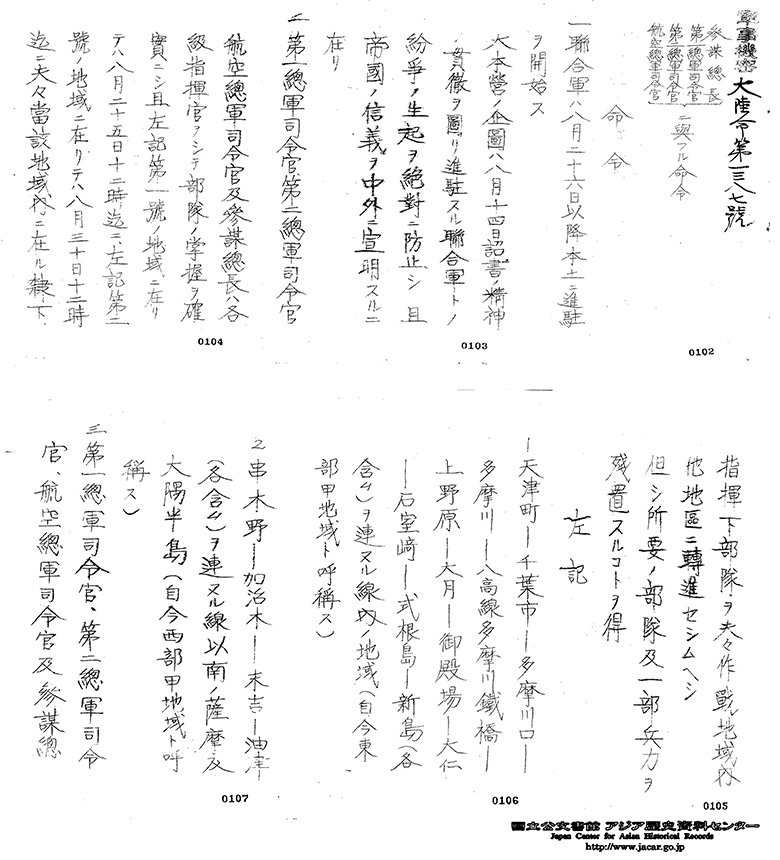 軍事機密
大陸命第一三八七號
命令
參謀總長
第一總軍司令官
第二總軍司令官
航空總軍司令官
ニ與フル命令
一聯合軍ハ八月二十六日以降本土ニ進駐
ヲ開始ス
大本營ノ企圖ハ八月十四日詔書ノ精神
ノ貫徹ヲ圖リ進駐スル聯合軍トノ
紛爭ノ生起ヲ絶對ニ防止シ且
帝國ノ信義ヲ中外ニ宣明スルニ
在リ
二第一總軍司令官、第二總軍司令官
航空總軍司令官及參謀總長ハ各
級指揮官ヲシテ部隊ノ掌握ヲ確
實ニシ且左記第一號ノ地域ニ在リ
テハ八月二十五日十二時迄ニ、左記第二
號ノ地域ニ在リテハ八月三十日十二時
迄ニ夫々當該地域内ニ在ル隷下
0104
0103
0102
指揮下部隊ヲ夫々作戰地域内
他地區ニ轉進セシムヘシ
但シ所要ノ部隊及一部兵力ヲ
殘置スルコトヲ得
左記
1天津町—千葉市—多摩川口—
多摩川—八高線多摩川鐵橋—
上野原—大月—御殿場—大仁
—石室﨑—式根島—新島(各
含ム)ヲ連ヌル線内ノ地域(自今東
部甲地域ト呼稱ス)
2串木野—加治木—末吉—油津
(各含ム)ヲ連ヌル線以南ノ薩摩及
大隅半島(自今西部甲地域ト呼
稱ス)
三第一總軍司令官、第二總軍司令
官、航空總軍司令官及參謀總
0107
0106
0105
国立公文書館 アジア歴史資料センター
Japan Center for Asian Historical Records
http://www.jacar.go.jp